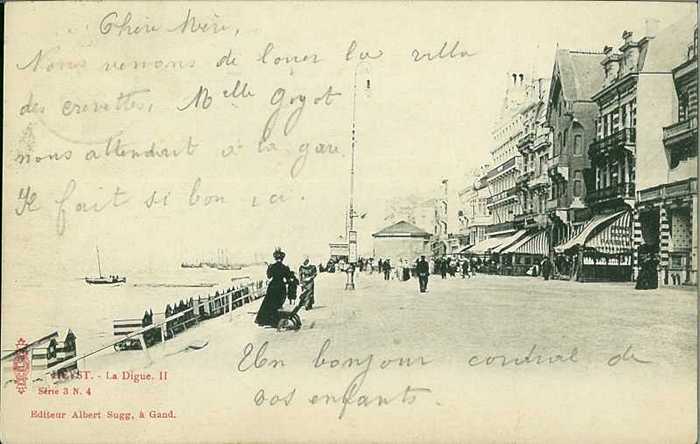 Chère Mère,
Nous venons de louer la villa
des crevettes, Melle Goyot
nous attendait à la gare.
Il fait si bon ici.
Un bonjour cordial de
vos enfants.
HEYST. - La Digue. II
Série 3 N. 4
Editeur Albert Sugg, à Gand.